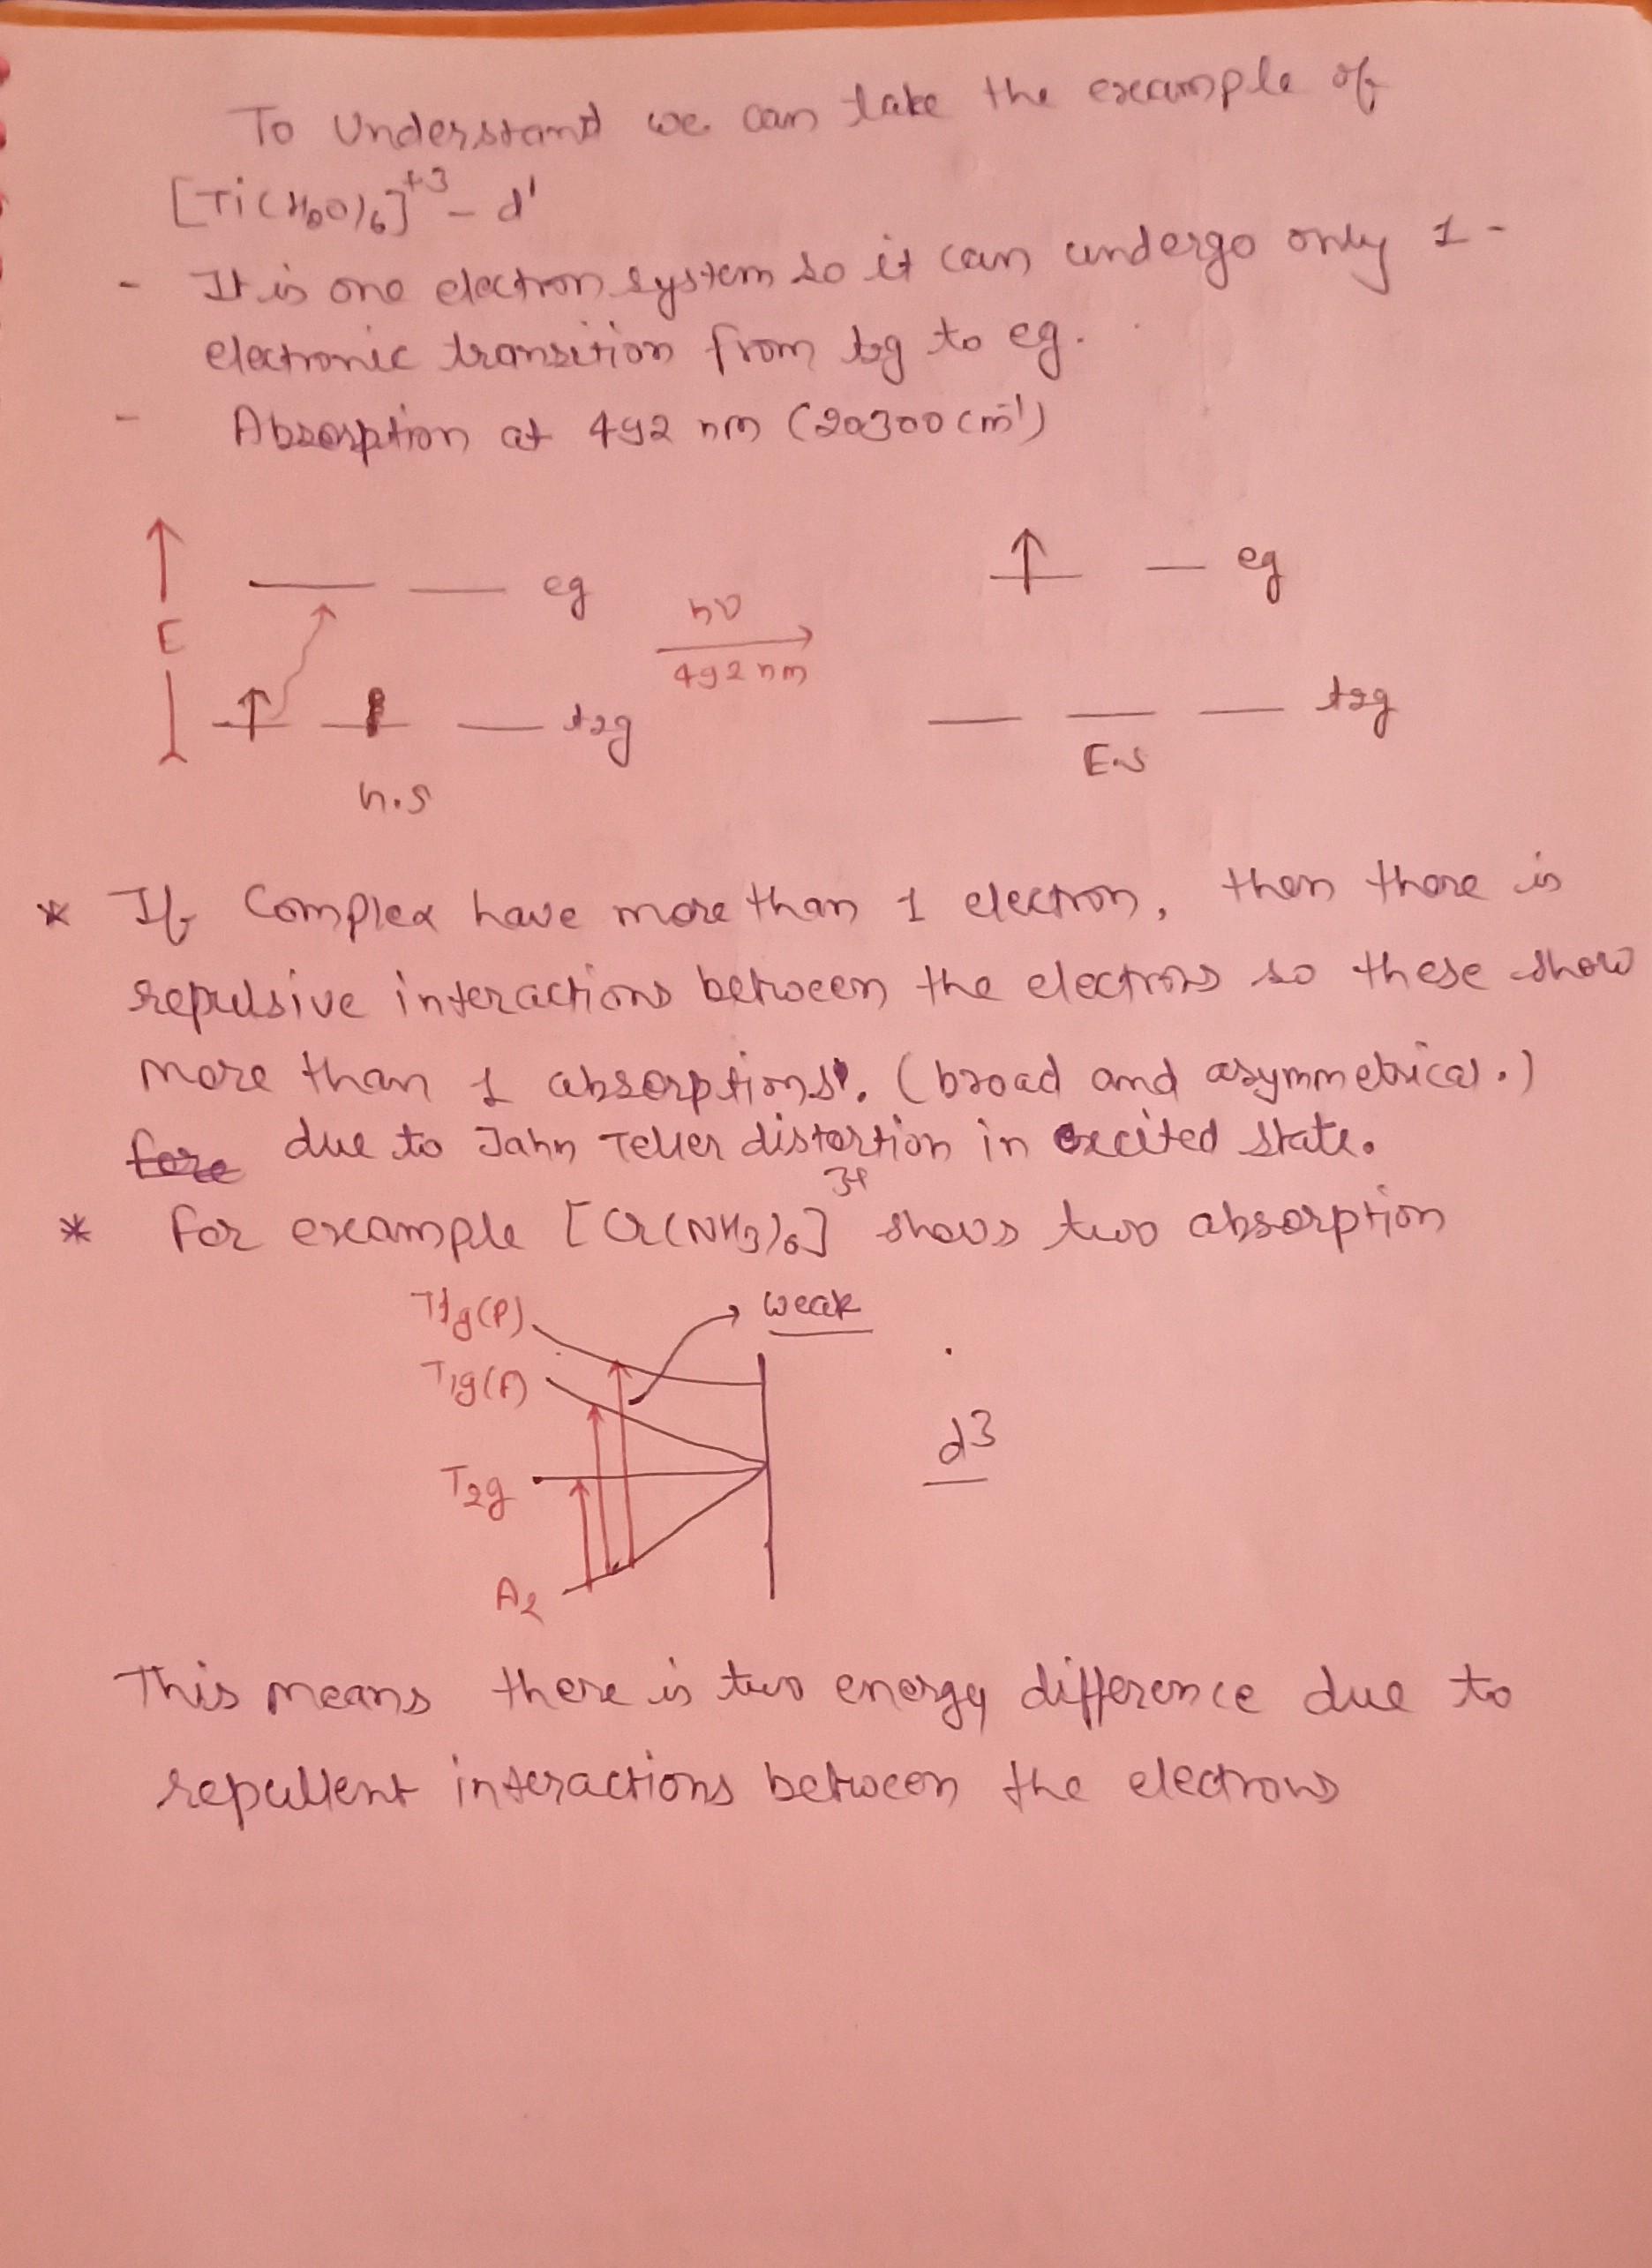 To Understand we can take the example of
[Ti(H2O)6]+3 - d1
- It is one electron system so it can undergo only 1 -
electronic transition from t2g to eg.
- Absorption at 492 nm (20300 cm-1)
eg
eg
hν
E
492 nm
t2g
t2g
E.S
h.s
* If Complex have more than 1 electron, then there is
repulsive interactions between the electrons so these show
more than 1 absorptions. (broad and asymmetrical.)
due to Jahn Teller distortion in excited state.
* For example [Cr(NH3)6]3+ shows two absorption
T1g(P)
weak
T1g(F)
d3
T2g
A2
This means there is two energy difference due to
repullent interactions between the electrons